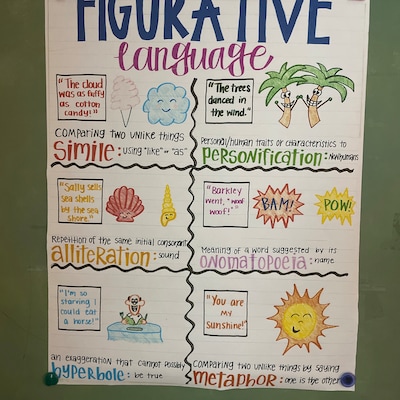 FIGURATIVE
language
"The cloud
was as fluffy
as cotton
candy!"
COMPARING two unlike things
simile: using "like" or "as"
"The trees
danced in
the wind."
Personal/human traits or characteristics to
personification: Nonhumans
"Sally sells
sea shells
by the sea
shore."
Repetition of the same initial consonant
alliteration: sound
"Barkley
went, "woof
woof!"
BAM!
POW!
Meaning of a word suggested by its
onomatopoeia: name
"I'm so
starving I
could eat
a horse!"
an exaggeration that cannot possibly
hyperbole: be true
"You are
my
sunshine!"
COMPARING two unlike things by saying
metaphor: one is the other